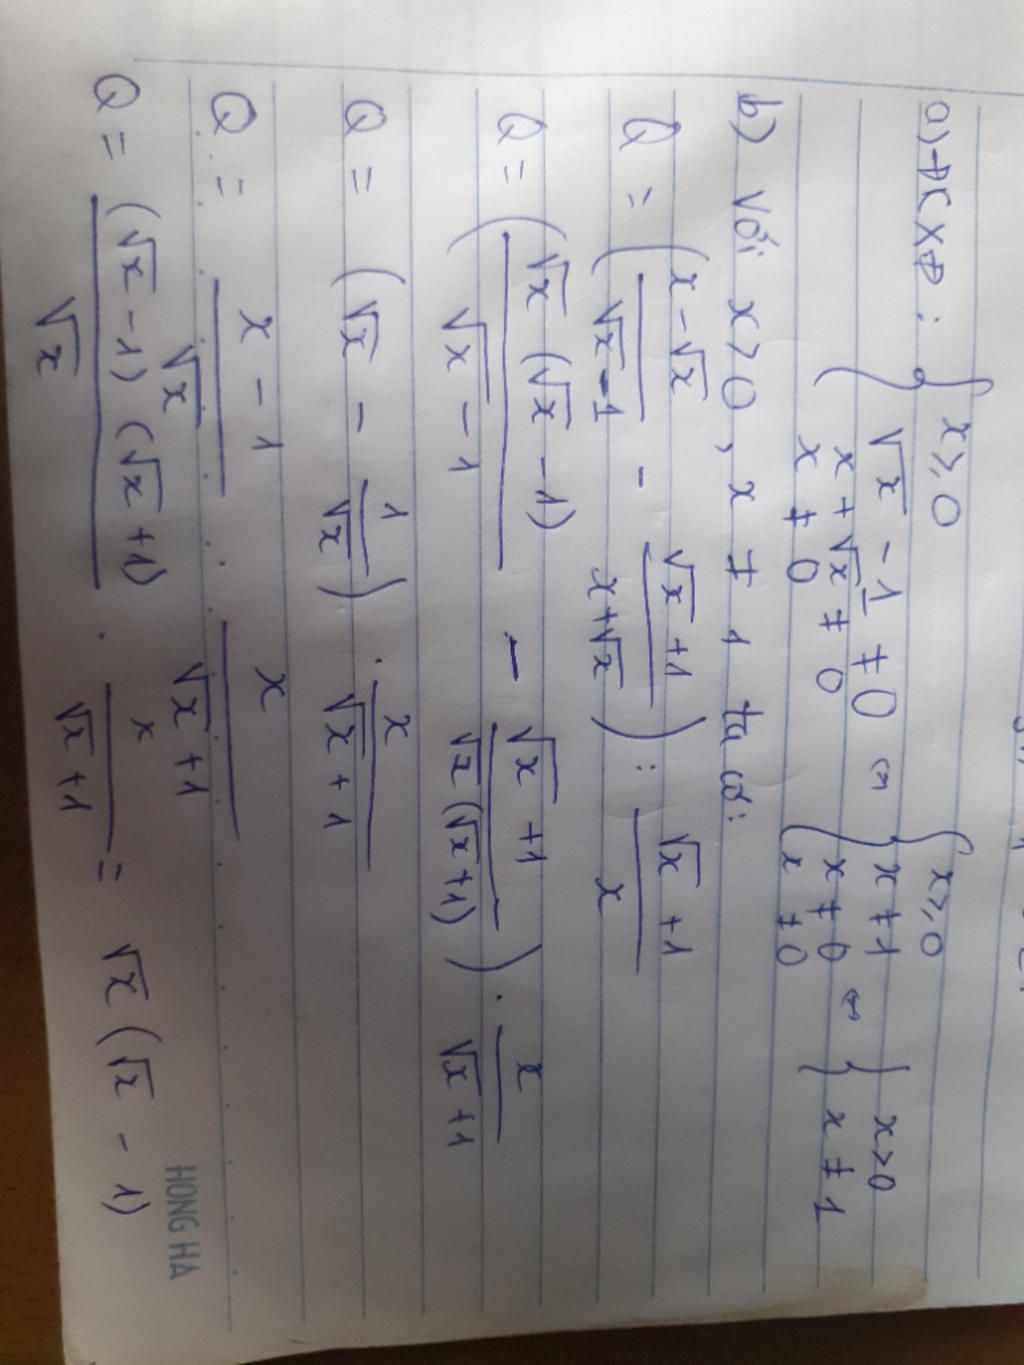 a) ĐKXĐ: { x ≥ 0
√x - 1 ≠ 0
x + √x ≠ 0
x ≠ 0 ⇔ { x ≥ 0
x ≠ 1
x ≠ 0
x ≠ 0 ⇔ { x > 0
x ≠ 1
b) Với x > 0, x ≠ 1 ta có:
Q = ( (x - √x)/(√x - 1) - (√x + 1)/(x + √x) ) : (√x + 1)/x
Q = ( √x (√x - 1)/(√x - 1) - (√x + 1)/(√x (√x + 1)) ) . x/(√x + 1)
Q = (√x - 1/√x) . x/(√x + 1)
Q = (x - 1)/√x . x/(√x + 1)
Q = (√x - 1) (√x + 1)/√x . x/(√x + 1) = √x (√x - 1)
HONG HA